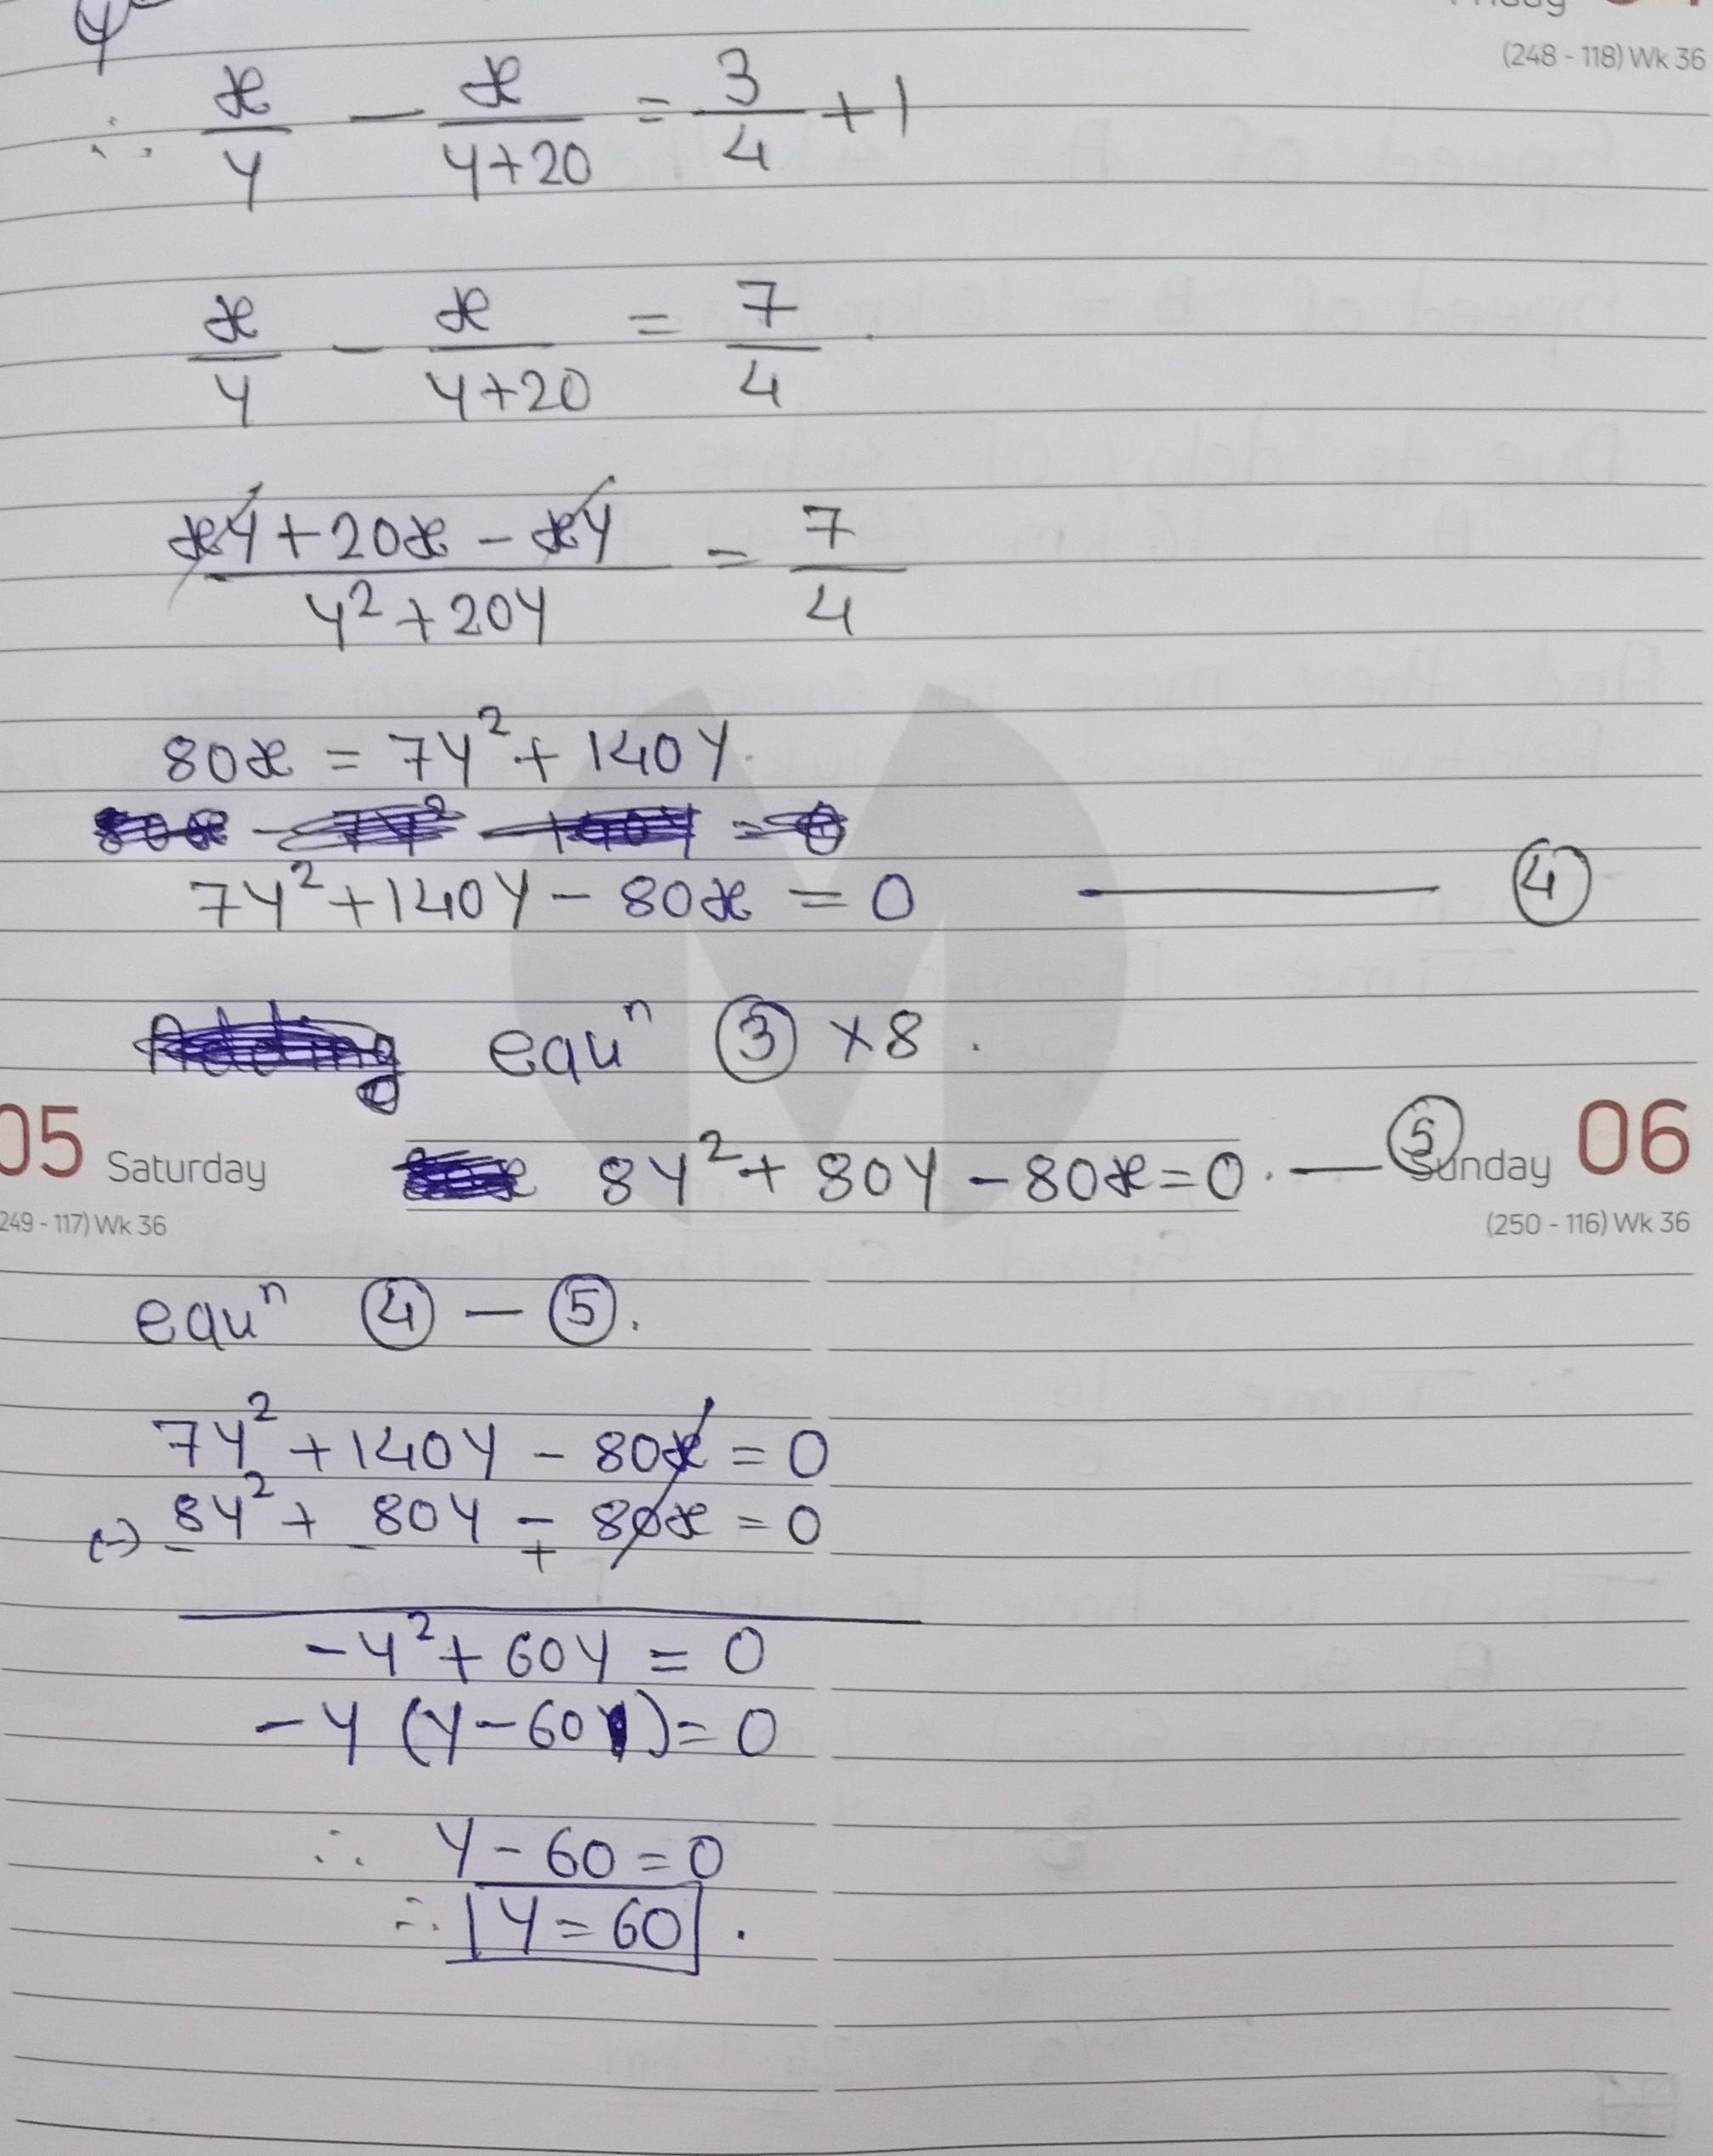 (248 - 118) Wk 36
∴ x/y - x/(y+20) = 3/4 + 1
x/y - x/(y+20) = 7/4
(xy + 20x - xy)/(y² + 20y) = 7/4
80x = 7y² + 140y.
7y² + 140y - 80x = 0 —— ④
equⁿ ③ × 8.
05 Saturday 8y² + 80y - 80x = 0. — ⑤ Sunday 06
249 - 117) Wk 36 (250 - 116) Wk 36
equⁿ ④ - ⑤.
7y² + 140y - 80x = 0
(-) 8y² + 80y - 80x = 0
- - +
-y² + 60y = 0
-y (y - 60) = 0
∴ y - 60 = 0
∴ y = 60.